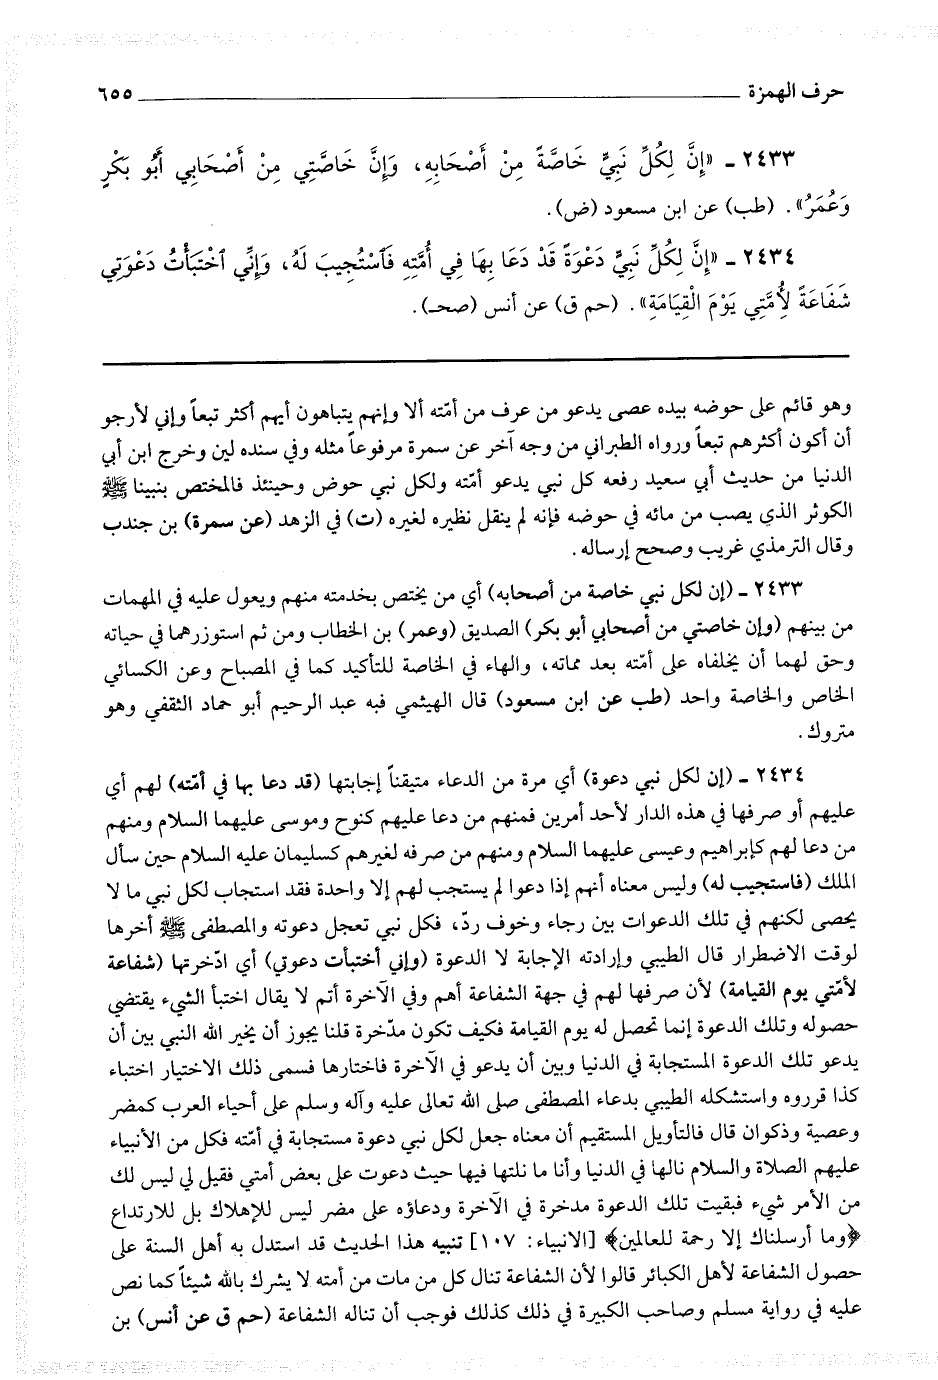 حرف الهمزة ٦٥٥
٢٤٣٣ ـ «إِنَّ لِكُلِّ نَبِيٍّ خَاصَّةً مِنْ أَصْحَابِهِ، وَإِنَّ خَاصَّتِي مِنْ أَصْحَابِي أَبُو بَكْرٍ
وَعُمَرُ». (طب) عن ابن مسعود (ض).
٢٤٣٤ ـ «إِنَّ لِكُلِّ نَبِيٍّ دَعْوَةً قَدْ دَعَا بِهَا فِي أُمَّتِهِ فَٱسْتُجِيبَ لَهُ، وَإِنِّي ٱخْتَبَأْتُ دَعْوَتِي
شَفَاعَةً لِأُمَّتِي يَوْمَ الْقِيَامَةِ». (حم ق) عن أنس (صحـ).
وهو قائم على حوضه بيده عصى يدعو من عرف من أمّته ألا وإنهم يتباهون أيهم أكثر تبعاً وإني لأرجو
أن أكون أكثرهم تبعاً ورواه الطبراني من وجه آخر عن سمرة مرفوعاً مثله وفي سنده لين وخرج ابن أبي
الدنيا من حديث أبي سعيد رفعه كل نبي يدعو أمّته ولكل نبي حوض وحينئذ فالمختص بنبينا ﷺ
الكوثر الذي يصب من مائه في حوضه فإنه لم ينقل نظيره لغيره (ت) في الزهد (عن سمرة) بن جندب
وقال الترمذي غريب وصحح إرساله.
٢٤٣٣ ـ (إن لكل نبي خاصة من أصحابه) أي من يختص بخدمته منهم ويعول عليه في المهمات
من بينهم (وإن خاصتي من أصحابي أبو بكر) الصديق (وعمر) بن الخطاب ومن ثم استوزرهما في حياته
وحق لهما أن يخلفاه على أمّته بعد مماته، والهاء في الخاصة للتأكيد كما في المصباح وعن الكسائي
الخاص والخاصة واحد (طب عن ابن مسعود) قال الهيثمي فيه عبد الرحيم أبو حماد الثقفي وهو
متروك.
٢٤٣٤ ـ (إن لكل نبي دعوة) أي مرة من الدعاء متيقناً إجابتها (قد دعا بها في أمّته) لهم أي
عليهم أو صرفها في هذه الدار لأحد أمرين فمنهم من دعا عليهم كنوح وموسى عليهما السلام ومنهم
من دعا لهم كإبراهيم وعيسى عليهما السلام ومنهم من صرفه لغيرهم كسليمان عليه السلام حين سأل
الملك (فاستجيب له) وليس معناه أنهم إذا دعوا لم يستجب لهم إلا واحدة فقد استجاب لكل نبي ما لا
يحصى لكنهم في تلك الدعوات بين رجاء وخوف ردّ، فكل نبي تعجل دعوته والمصطفى ﷺ أخرها
لوقت الاضطرار قال الطيبي وإرادته الإجابة لا الدعوة (وإني أختبأت دعوتي) أي ادّخرتها (شفاعة
لأمّتي يوم القيامة) لأن صرفها لهم في جهة الشفاعة أهم وفي الآخرة أتم لا يقال اختبأ الشيء يقتضي
حصوله وتلك الدعوة إنما تحصل له يوم القيامة فكيف تكون مدّخرة قلنا يجوز أن يخير الله النبي بين أن
يدعو تلك الدعوة المستجابة في الدنيا وبين أن يدعو في الآخرة فاختارها فسمى ذلك الاختيار اختباء
كذا قرروه واستشكله الطيبي بدعاء المصطفى صلى الله تعالى عليه وآله وسلم على أحياء العرب كمضر
وعصية وذكوان قال فالتأويل المستقيم أن معناه جعل لكل نبي دعوة مستجابة في أمّته فكل من الأنبياء
عليهم الصلاة والسلام نالها في الدنيا وأنا ما نلتها فيها حيث دعوت على بعض أمتي فقيل لي ليس لك
من الأمر شيء فبقيت تلك الدعوة مدخرة في الآخرة ودعاؤه على مضر ليس للإهلاك بل للارتداع
﴿وما أرسلناك إلا رحمة للعالمين﴾ [الانبياء: ١٠٧] تنبيه هذا الحديث قد استدل به أهل السنة على
حصول الشفاعة لأهل الكبائر قالوا لأن الشفاعة تنال كل من مات من أمته لا يشرك بالله شيئاً كما نص
عليه في رواية مسلم وصاحب الكبيرة في ذلك كذلك فوجب أن تناله الشفاعة (حم ق عن أنس) بن